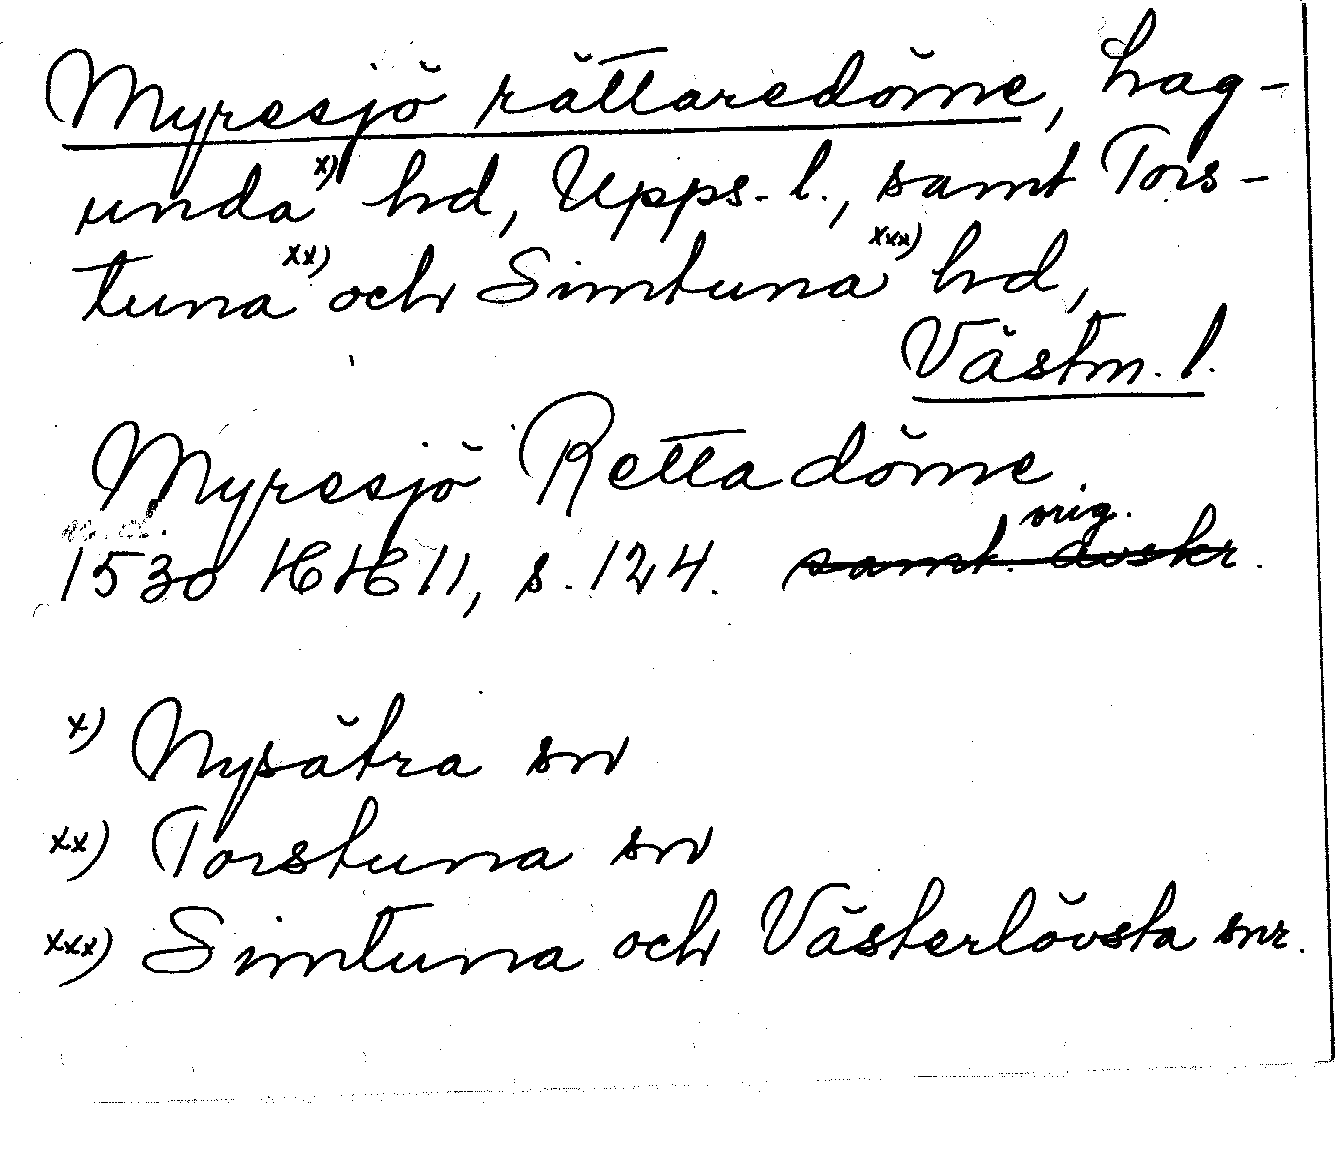 Myresjö rättaredöme, Lag-
unda x) hd, Upps. l., samt Tors-
tuna xx) och Simtuna xxx) hd,
Västm. l.
Myresjö Rettadöme.
orig.
1530 HH 11, s. 124. samt. avskr.
x) Nysätra sn
xx) Torstuna sn
xxx) Simtuna och Västerlövsta snr.